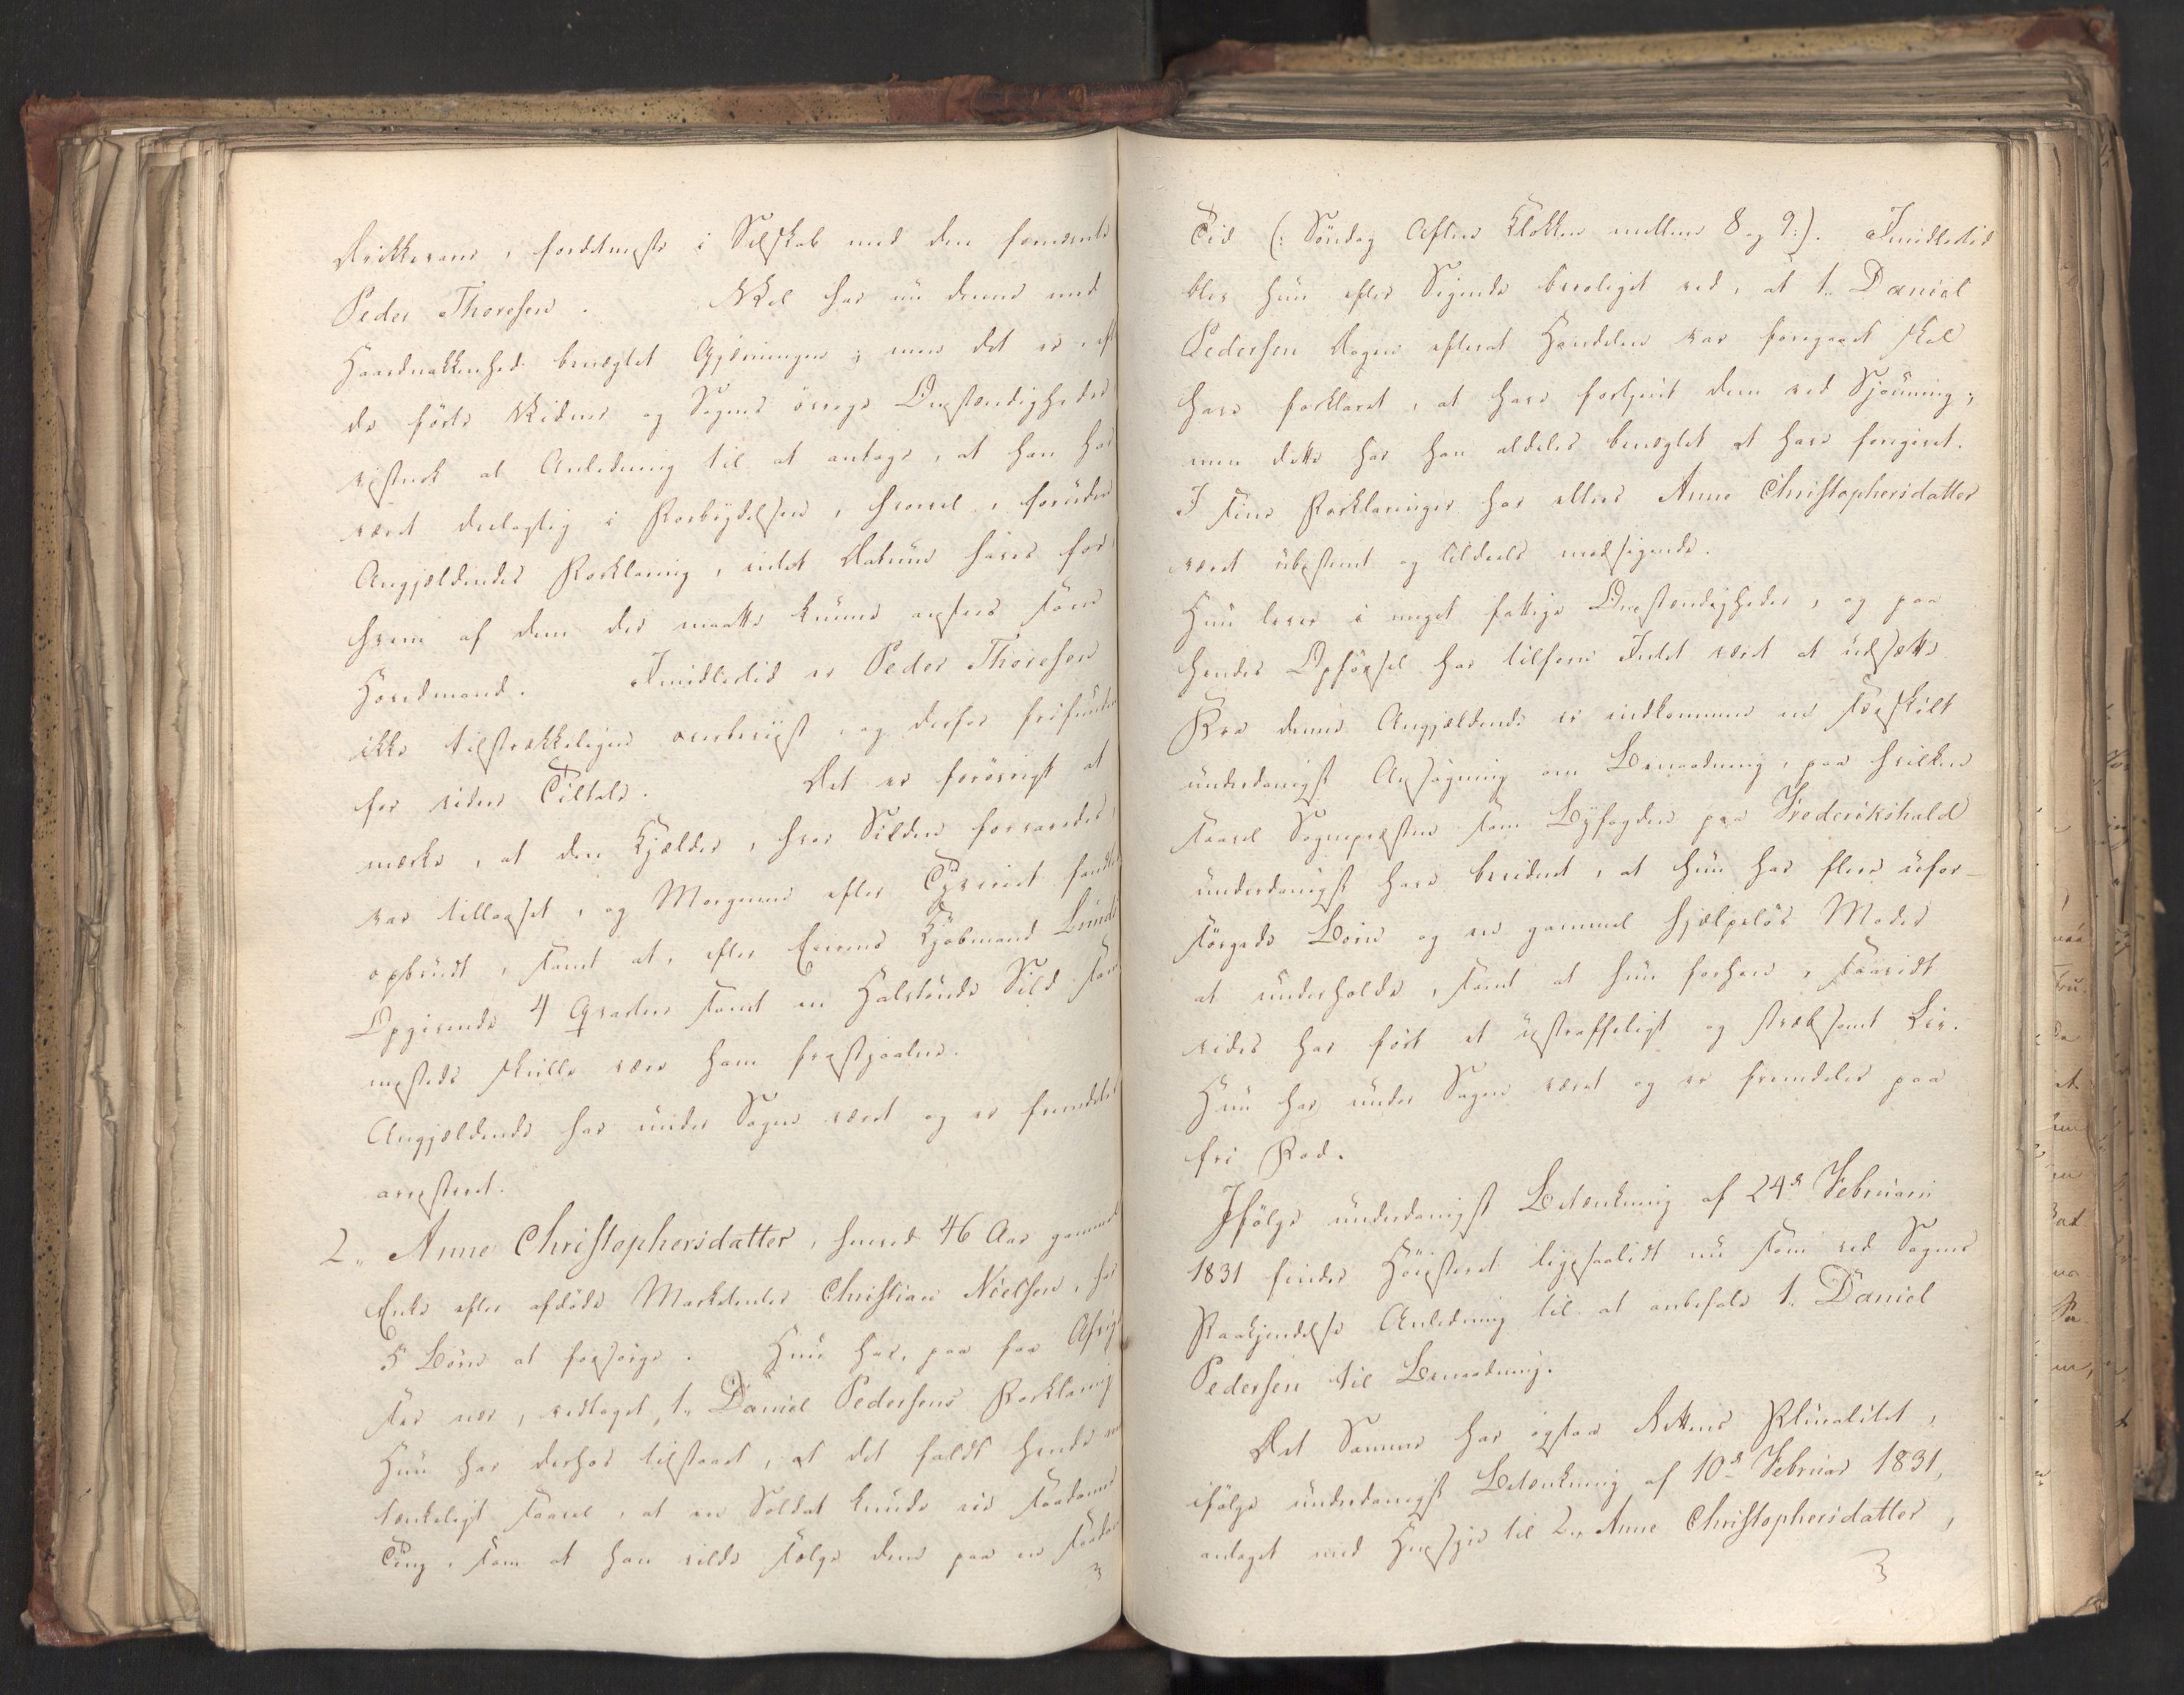 drikkevare, fordetmeste i Selskab med den fornevnte
Peder Thoresen. Vel har nu denne med
Haardnakkenhed benægtet Gjerningen; men det er, eft
de førte Vidner og Sagens øvrige Omstændigheder
bestemt al Anledning til at antage, at han har
været deelagtig i Forbrydelsen, hvorvel, foruden
Angjældendes Forklaring, intet Datum haves for,
hvem af dem der maatte kunne ansees som
Hovedmand. Imidlertid er Peder Thoresen
ikke tilstrækkeligen overbeviist, og derfor frifunden
for videre Tiltale. Det er forøvrigt at
mærke, at den Kjælder, hvor Silden forvaredes,
var tillaaset, og Morgenen efter Tyveriet fandtes
opbrudt, samt at, efter Eieren Kjøbmand Lunds
Opgivende 4 Qvarter samt en Halvtønde Sild som
mestede skulle være ham frastjaalen.
Angjældende har under Sagen været og er fremdeles
arresteret.
2, Anne Christophersdatter, henved 46 Aar gammel
Enke efter afdøde Marketenter Christian Nielsen, har
5 Børn at forsørge. Hun har, paa faa Afvig
ser nær, vedtaget 1, Daniel Pedersens Forklaring
Hun har derhos tilstaaet, at det faldt hende
tænkeligt saavel, at en Soldat kunde eie saadanne
Ting, som at han vilde sælge dem paa en saadan
Tid (: Søndag Aften Klokken mellem 8 og 9:). Imidlertid
blev hun efter Sigende beroliget ved, at 1, Daniel
Pedersen Dagen efterat Handelen var foregaaet skal
have forklaret, at have fortjent dem ved Sjouning;
men dette har han aldeles benægtet at have foregivet.
I sine Forklaringer har ellers Anne Christophersdatter
været ubestemt og tildeels modsigende.
Hun lever i meget fattige Omstændigheder, og paa
hendes Opførsel har tilforn Intet været at udsætte.
Fra denne Angjældende er indkommen en særskilt
underdanigst Ansøgning om Benaadning, paa hvilken
saavel Sognepresten som Byfogden paa Frederikshald
underdanigst have bevidnet, at hun har flere ufor-
sørgede Børn og en gammel hjælpeløs Moder
at underholde, samt at hun forhen, saavidt
vides har ført et ustraffeligt og stræbsomt Liv.
Hun har under Sagen været og er fremdeles paa
fri Fod.
Ifølge underdanigst Betænkning af 24de Februarii
1831 finder Høiesteret ligesaalidt nu som ved Sagens
Paakjendelse Anledning til at anbefale 1, Daniel
Pedersen til Benaadning.
Det Samme har ogsaa Rettens Pluralitet,
ifølge underdanigst Betænkning af 10de Februar 1831,
antaget med Hensyn til 2, Anne Christophersdatter,